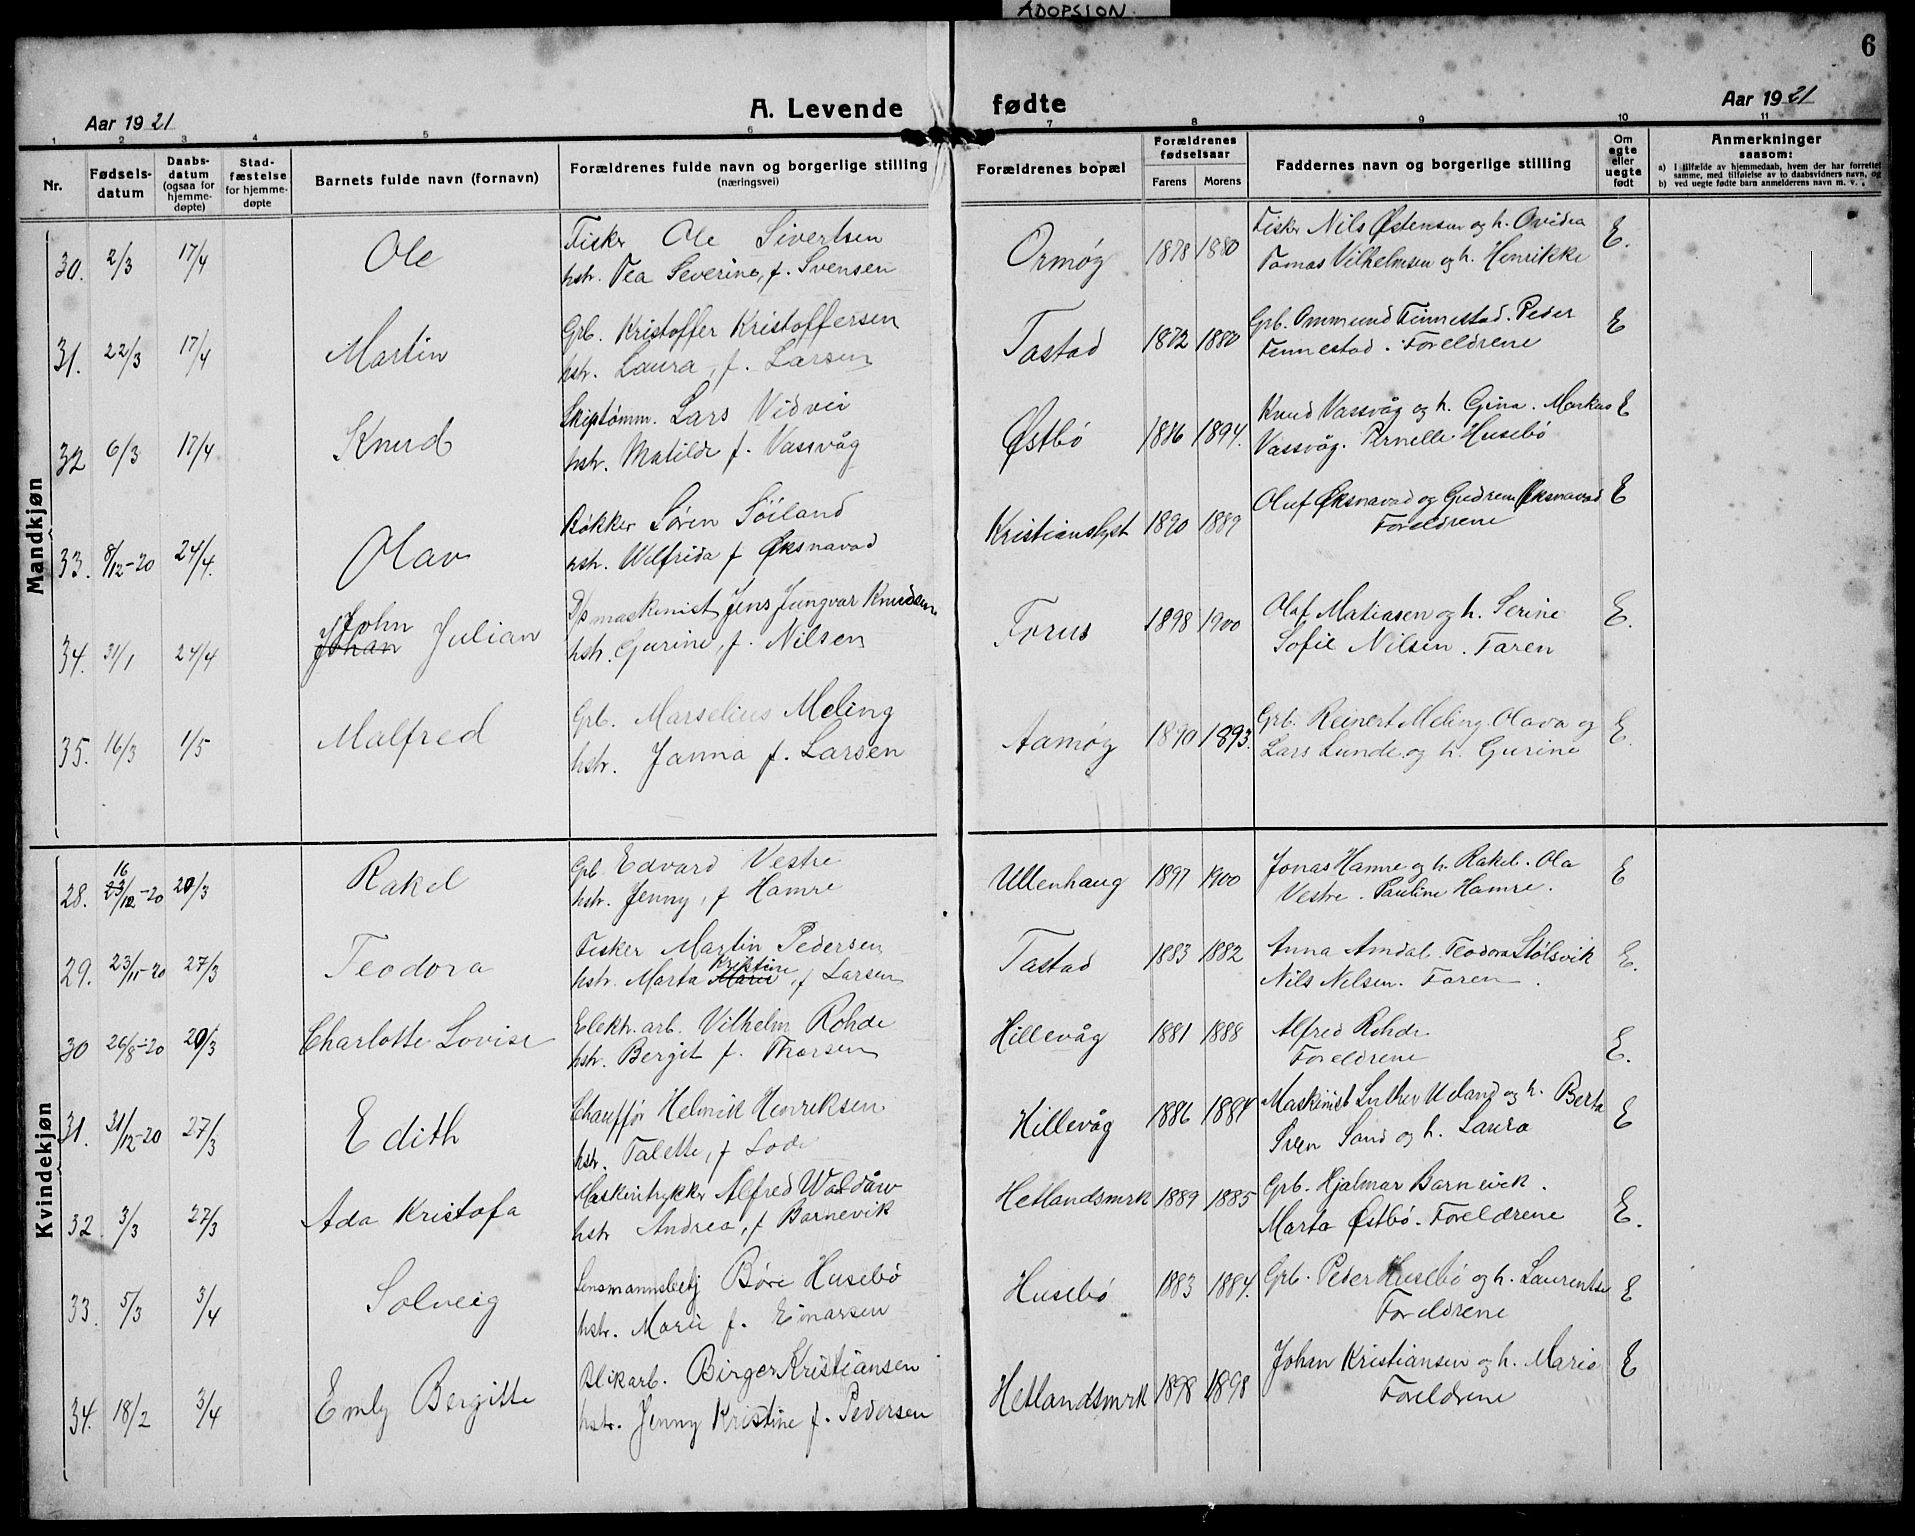 ADOPSION.
6
A. Levende fødte
Aar 1921
Aar 1921
1 2 3 4 5 6 7 8 9 10 11
Nr.
Fødsels-
datum
Daabs-
datum
(ogsaa for
hjemme-
døpte)
Stad-
fæstelse
for hjemme-
døpte
Barnets fulde navn (fornavn)
Forældrenes fulde navn og borgerlige stilling
(næringsvei)
Forældrenes bopæl
Forældrenes
fødselsaar
Farens Morens
Faddernes navn og borgerlige stilling
Om
egte
eller
uegte
født
Anmerkninger
saasom:
a) I tilfælde av hjemmedaab, hvem der har forrettet
samme, med tilføielse av to daabsvidners navn, og
b) ved uegte fødte barn anmelderens navn m. v.
Mandkjøn
30. 2/3 17/4 Ole
Fisker Ole Sivertsen
hstr. Tea Severine, f. Svensen
Ormøy 1878 1880
Fisker Nils Østensen og h. Ovidia
Tomas Vilhelmsen og h. Henrikke
E.
31. 22/3 17/4 Martin
Grb. Kristoffer Kristoffersen
hstr. Laura, f. Larsen
Tastad 1872 1880
Grb. Ommund Finnestad. Peder
Finnestad. Foreldrene
E
32 6/3 17/4 Knud
Skiptømm. Lars Vidvei
hstr. Matilde f. Vassvåg
Østbö 1894.
Knud Vassvåg og h. Gina. Markus
Vassvåg. Pernelle Husebö
E
33. 8/12-20 24/4. Olav
Bøkker Søren Söiland
hstr. Wilfrida f Øksnavad
Kristianslyst 1890 1889
Oluf Øksnavad og Gudrun Øksnavad
Foreldrene
E
34. 31/1 24/4 John
Johan Julian
D/s maskinist Jens Jungvar Knudsen
hstr. Gurine, f. Nilsen
Forus 1898 1900
Olaf Matiasen og h. Serine
Sofie Nilsen. Faren
E.
35. 16/3 1/5 Malfred
Grb. Marselius Meling
hstr. Janna f. Larsen
Aamøy 1890 1893.
Grb. Reinert Meling. Olava og
Lars Lunde og h. Gurine
E.
Kvindekjøn
28. 16
23/12-20 20/3 Rakel
Grb. Edvard Vestre
hstr. Jenny, f Hamre
Ullenhaug 1897 1900
Jonas Hamre og h. Rakel. Ola
Vestre. Pauline Hamre.
E
29. 23/11-20 27/3 Teodora
Fisker Martin Pedersen
Kristine
hstr. Marta Marie, f Larsen
Tastad 1883 1882
Anna Amdal. Teodora Stölsvik
Nils Nilsen. Faren.
E.
30 26/8-20 20/3 Charlotte Lovise
Elektr. arb. Vilhelm Rohde
hstr. Bergit f. Thorsen
Hillevåg 1881 1888
Alfred Rohde
Foreldrene
E.
31. 31/12-20 27/3 Edith
Chauffør Helmik Henriksen
hstr. Talette, f Lode
Hillevåg 1886 1884
Maskinist Luther Ueland og h. Berta
Sven Sand og h. Laura
E
32 3/3 27/3 Ada Kristofa
Maskintrykker Alfred Waldåw
hstr Andrea, f Barnevik
Hetlandsmrk 1889 1885
Grb. Hjalmar Barnevik.
Marta Østbö. Foreldrene
E.
33. 5/3 3/4 Solveig
Lensmannsbetj Børe Husebö
hstr. Marie f. Einarsen
Husebö 1883 1884.
Grb. Peder Husebö og h. Laurentse
Foreldrene
E
34. 18/2 3/4 Emly Bergitte
Blikarb. Birger Kristiansen
hstr. Jenny Kristine f. Pedersen
Hetlandsmrk 1898 1898
Johan Kristiansen og h. Marie
Foreldrene
E